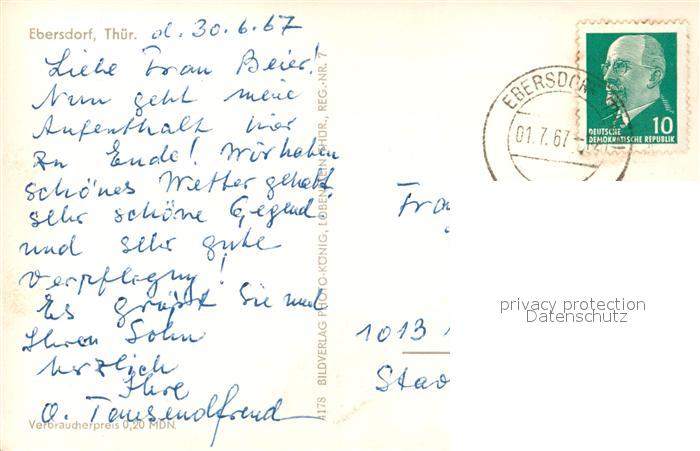 Ebersdorf, Thür.
d. 30.6.67
Liebe Frau Beier!
Nun geht meine
Aufenthalt hier
zu Ende! Wir haben
schönes Wetter gehabt
sehr schöne Gegend
und sehr gute
Verpflegung!
Es grüßt Sie und
Ihren Sohn
herzlich
Ihre
O. Tausendfreund
Verbraucherpreis 0,20 MDN.
4178 BILDVERLAG PHOTO-KÖNIG, LOBENSTEIN THÜR., REG.-NR. 7
EBERSDORF
01.7.67
10
DEUTSCHE
DEMOKRATISCHE REPUBLIK
Fra
1013
Stad
privacy protection
Datenschutz